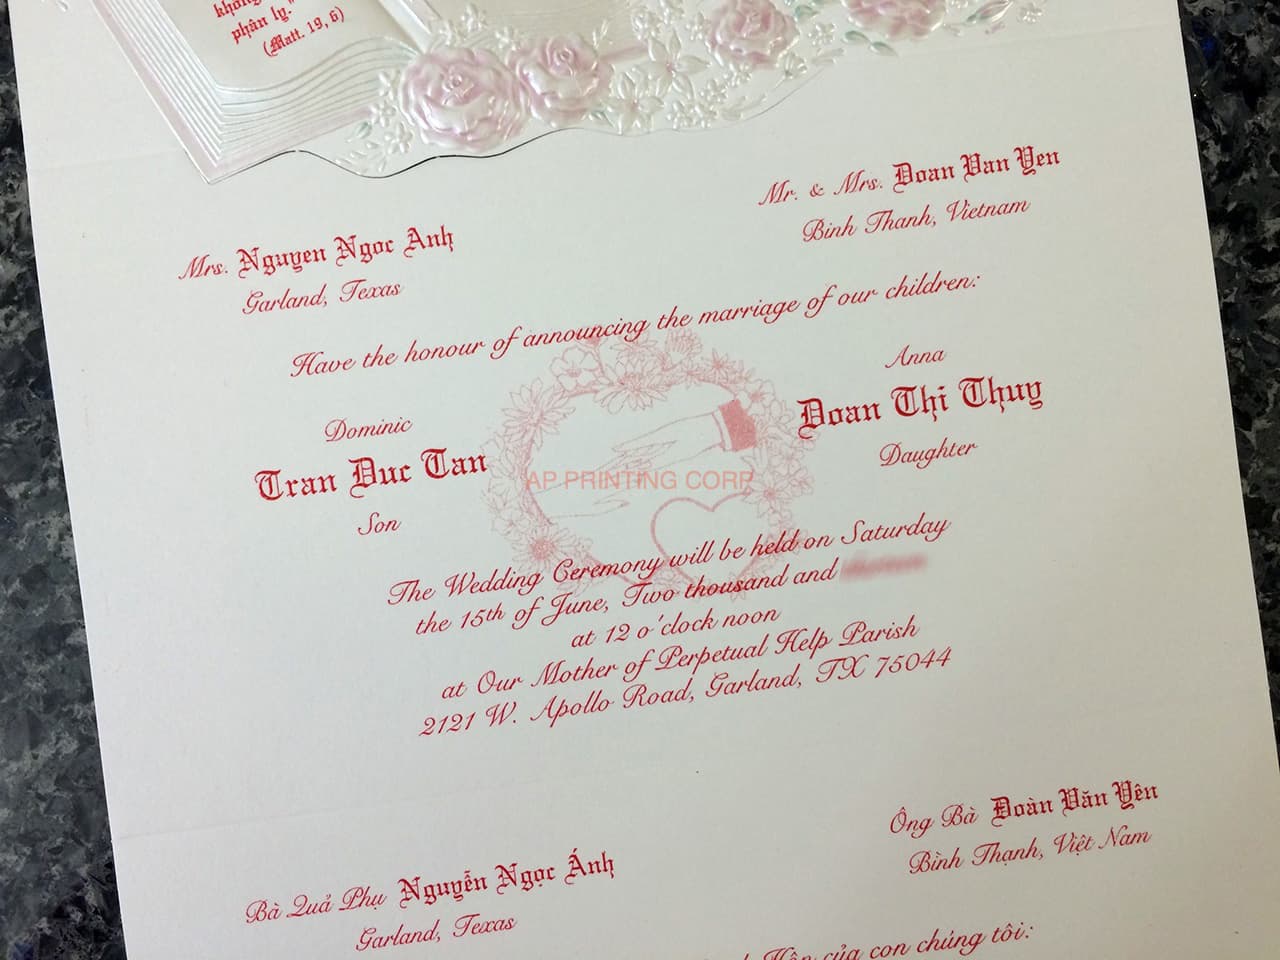 không
phân ly."
(Matt. 19, 6)
Mr. & Mrs. Doan Van Yen
Binh Thanh, Vietnam
Mrs. Nguyen Ngoc Anh
Garland, Texas
Have the honour of announcing the marriage of our children:
Anna
Doan Thi Thuy
Daughter
Dominic
Tran Duc Tan
Son
AP PRINTING CORP
The Wedding Ceremony will be held on Saturday
the 15th of June, Two thousand and
at 12 o'clock noon
at Our Mother of Perpetual Help Parish
2121 W. Apollo Road, Garland, TX 75044
Ông Bà Đoàn Văn Yên
Bình Thạnh, Việt Nam
Bà Quả Phụ Nguyễn Ngọc Ánh
Garland, Texas
Hôn của con chúng tôi: